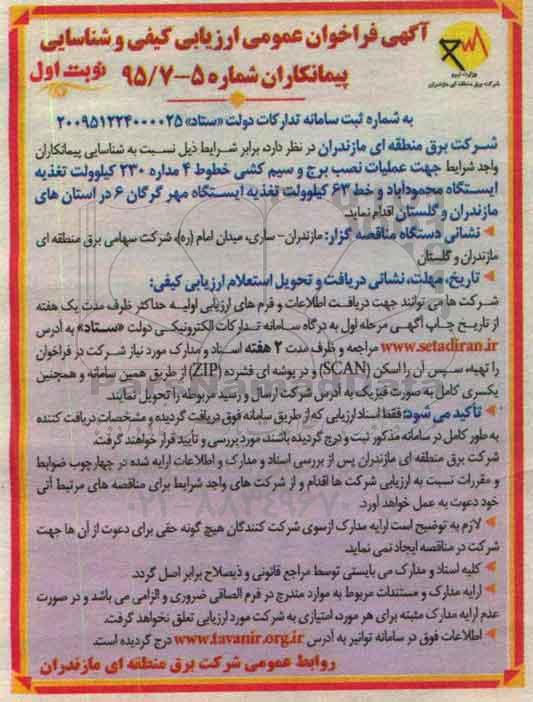 آگهی فراخوان عمومی ارزیابی کیفی و شناسایی
پیمانکاران شماره ۵-۹۵/۷
نوبت اول
وزارت نیرو
شرکت برق منطقه ای مازندران
به شماره ثبت سامانه تدارکات دولت «ستاد» ۲۰۰۹۵۱۲۲۴۰۰۰۰۲۵
شرکت برق منطقه ای مازندران در نظر دارد، برابر شرایط ذیل نسبت به شناسایی پیمانکاران
واجد شرایط جهت عملیات نصب برج و سیم کشی خطوط ۴ مداره ۲۳۰ کیلوولت تغذیه
ایستگاه محمودآباد و خط ۶۳ کیلوولت تغذیه ایستگاه مهر گرگان ۶ در استان های
مازندران و گلستان اقدام نماید.
نشانی دستگاه مناقصه گزار: مازندران- ساری، میدان امام (ره)، شرکت سهامی برق منطقه ای
مازندران و گلستان
تاریخ، مهلت، نشانی دریافت و تحویل استعلام ارزیابی کیفی:
شرکت ها می توانند جهت دریافت اطلاعات و فرم های ارزیابی اولیه حداکثر ظرف مدت یک هفته
از تاریخ چاپ آگهی مرحله اول به درگاه سامانه تدارکات الکترونیکی دولت «ستاد» به آدرس
www.setadiran.ir مراجعه و ظرف مدت ۲ هفته اسناد و مدارک مورد نیاز شرکت در فراخوان
را تهیه، سپس آن را اسکن (SCAN) و در پوشه ای فشرده (ZIP) از طریق همین سامانه و همچنین
یکسری کامل به صورت فیزیک به آدرس شرکت ارسال و رسید مربوطه را تحویل نمایند.
تأکید می شود: فقط اسناد ارزیابی که از طریق سامانه فوق دریافت گردیده و مشخصات دریافت کننده
به طور کامل در سامانه مذکور ثبت و درج گردیده باشند، مورد بررسی و تایید قرار خواهند گرفت.
شرکت برق منطقه ای مازندران پس از بررسی اسناد و مدارک و اطلاعات ارایه شده در چهارچوب ضوابط
و مقررات نسبت به ارزیابی شرکت ها اقدام و از شرکت های واجد شرایط برای مناقصه های مرتبط آتی
خود دعوت به عمل خواهد آورد.
لازم به توضیح است ارایه مدارک ازسوی شرکت کنندگان هیچ گونه حقی برای دعوت از آن ها جهت
شرکت در مناقصه ایجاد نمی نماید.
کلیه اسناد و مدارک می بایستی توسط مراجع قانونی و ذیصلاح برابر اصل گردد.
ارایه مدارک و مستندات مربوط به موارد مندرج در فرم الصاقی ضروری و الزامی می باشد و در صورت
عدم ارایه مدارک مثبته برای هر مورد، امتیازی به شرکت مورد ارزیابی تعلق نخواهد گرفت.
اطلاعات فوق در سامانه توانیر به آدرس www.tavanir.org.ir درج گردیده است.
روابط عمومی شرکت برق منطقه ای مازندران